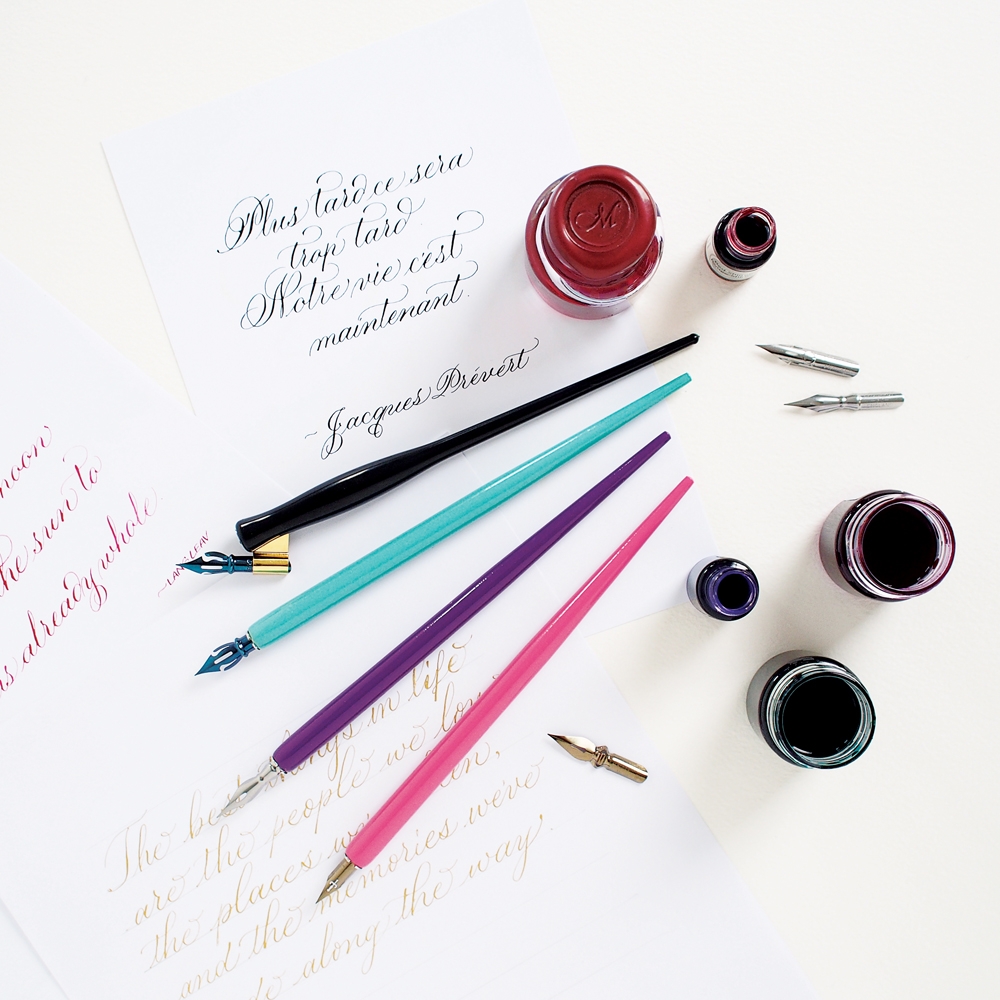 Plus tard ce sera
trop tard
Notre vie c'est
maintenant.
~ Jacques Prévert
noon
the sun to
already whole.
The best things in life
are the people we
the places
and the memories we've
along the way.
M